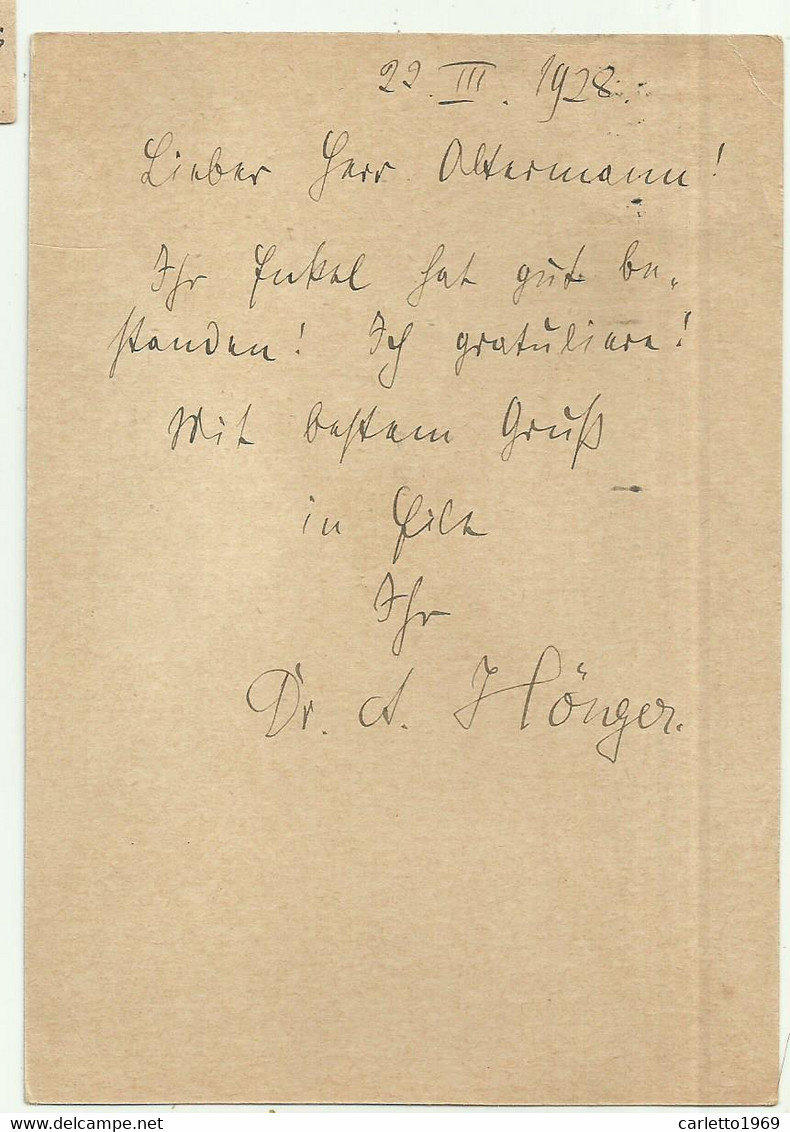 22. III. 1928.
Lieber Herr Altermann!
Ihr Enkel hat gut be-
standen! Ich gratuliere!
Mit bestem Gruß
in Eile
Ihr
Dr. A. Hönger.
delcampe.net
carletto1969